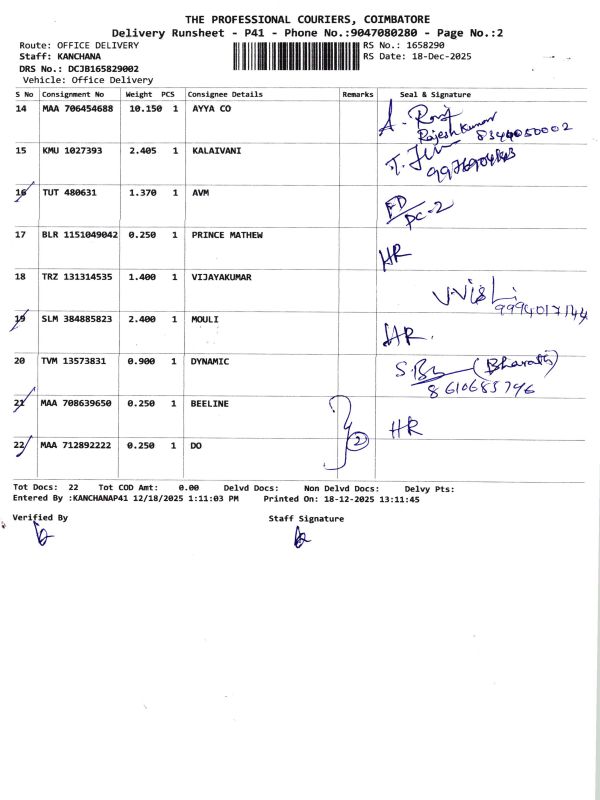 THE PROFESSIONAL COURIERS, COIMBATORE
Delivery Runsheet - P41 - Phone No.:9047080280 - Page No.:2
Route: OFFICE DELIVERY RS No.: 1658290
Staff: KANCHANA RS Date: 18-Dec-2025
DRS No.: DCJB165829002
Vehicle: Office Delivery
S No Consignment No Weight PCS Consignee Details Remarks Seal & Signature
14 MAA 706454688 10.150 1 AYYA CO
Rajesh Kumar 8344050002
15 KMU 1027393 2.405 1 KALAIVANI
16 TUT 480631 1.370 1 AVM FD
PC-2
17 BLR 1151049042 0.250 1 PRINCE MATHEW HR
18 TRZ 131314535 1.400 1 VIJAYAKUMAR
9994017144
19 SLM 384885823 2.400 1 MOULI HR.
20 TVM 13573831 0.900 1 DYNAMIC (Bharath)
8610683796
21 MAA 708639650 0.250 1 BEELINE HR
2
22 MAA 712892222 0.250 1 DO
Tot Docs: 22 Tot COD Amt: 0.00 Delvd Docs: Non Delvd Docs: Delvy Pts:
Entered By :KANCHANAP41 12/18/2025 1:11:03 PM Printed On: 18-12-2025 13:11:45
Verified By Staff Signature